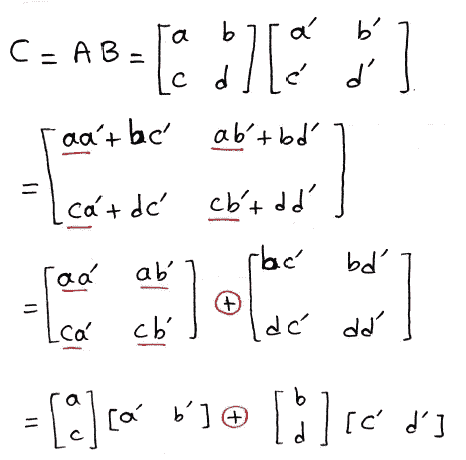 C = A B = [a b c d] [a′ b′ c′ d′]
= [aa′+bc′ ab′+bd′ ca′+dc′ cb′+dd′]
= [aa′ ab′ ca′ cb′] ⊕ [bc′ bd′ dc′ dd′]
= [a c] [a′ b′] ⊕ [b d] [c′ d′]